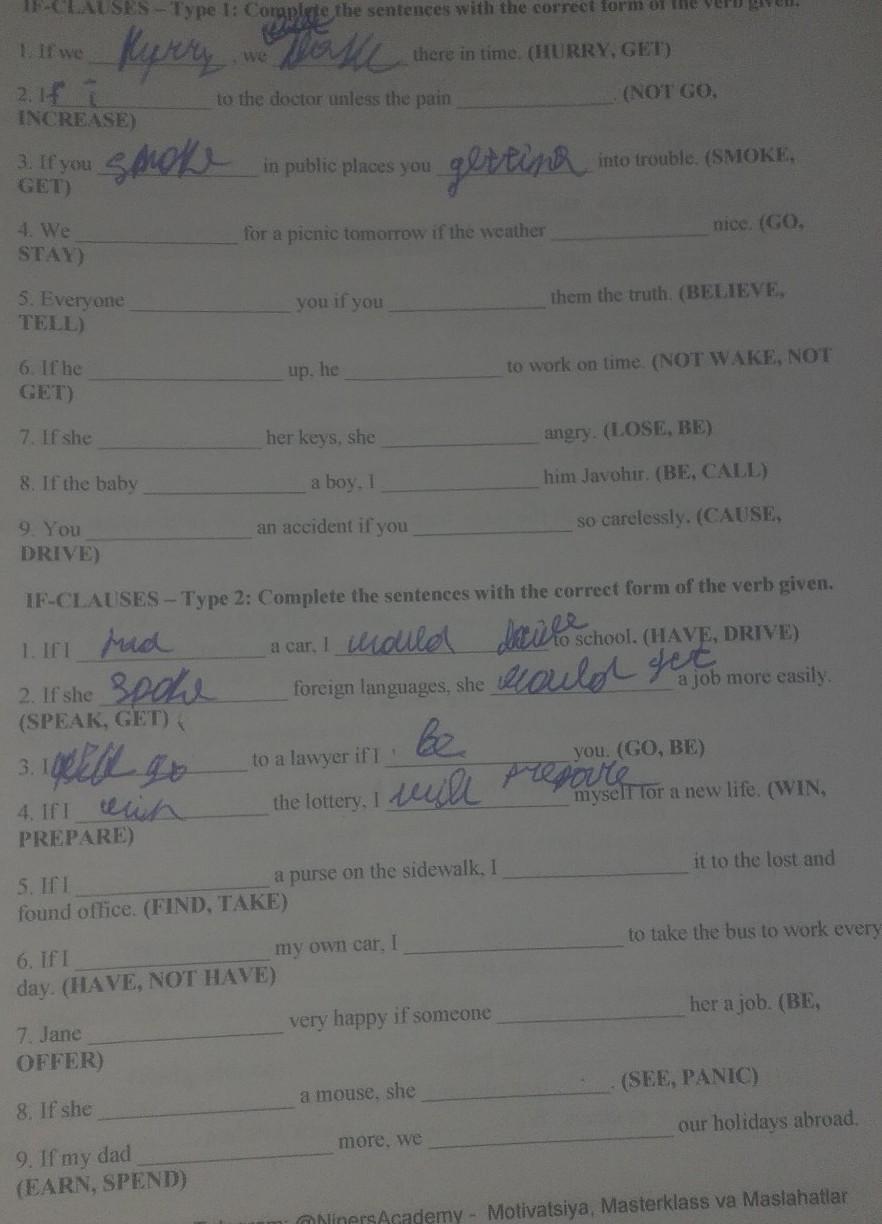 IF-CLAUSES – Type 1: Complete the sentences with the correct form of the verb given.
1. If we Hyrry, we there in time. (HURRY, GET)
2. If i to the doctor unless the pain ____________. (NOT GO,
INCREASE)
3. If you smoke in public places you getting into trouble. (SMOKE,
GET)
4. We ____________ for a picnic tomorrow if the weather ____________ nice. (GO,
STAY)
5. Everyone ____________ you if you ____________ them the truth. (BELIEVE,
TELL)
6. If he ____________ up, he ____________ to work on time. (NOT WAKE, NOT
GET)
7. If she ____________ her keys, she ____________ angry. (LOSE, BE)
8. If the baby ____________ a boy, I ____________ him Javohir. (BE, CALL)
9. You ____________ an accident if you ____________ so carelessly. (CAUSE,
DRIVE)
IF-CLAUSES – Type 2: Complete the sentences with the correct form of the verb given.
1. If I had a car, I would drive to school. (HAVE, DRIVE)
2. If she spoke foreign languages, she would get a job more easily.
(SPEAK, GET)
3. I go to a lawyer if I be you. (GO, BE)
4. If I win the lottery, I will prepare myself for a new life. (WIN,
PREPARE)
5. If I ____________ a purse on the sidewalk, I ____________ it to the lost and
found office. (FIND, TAKE)
6. If I ____________ my own car, I ____________ to take the bus to work every
day. (HAVE, NOT HAVE)
7. Jane ____________ very happy if someone ____________ her a job. (BE,
OFFER)
8. If she ____________ a mouse, she ____________. (SEE, PANIC)
9. If my dad ____________ more, we ____________ our holidays abroad.
(EARN, SPEND)
@NinersAcademy - Motivatsiya, Masterklass va Maslahatlar